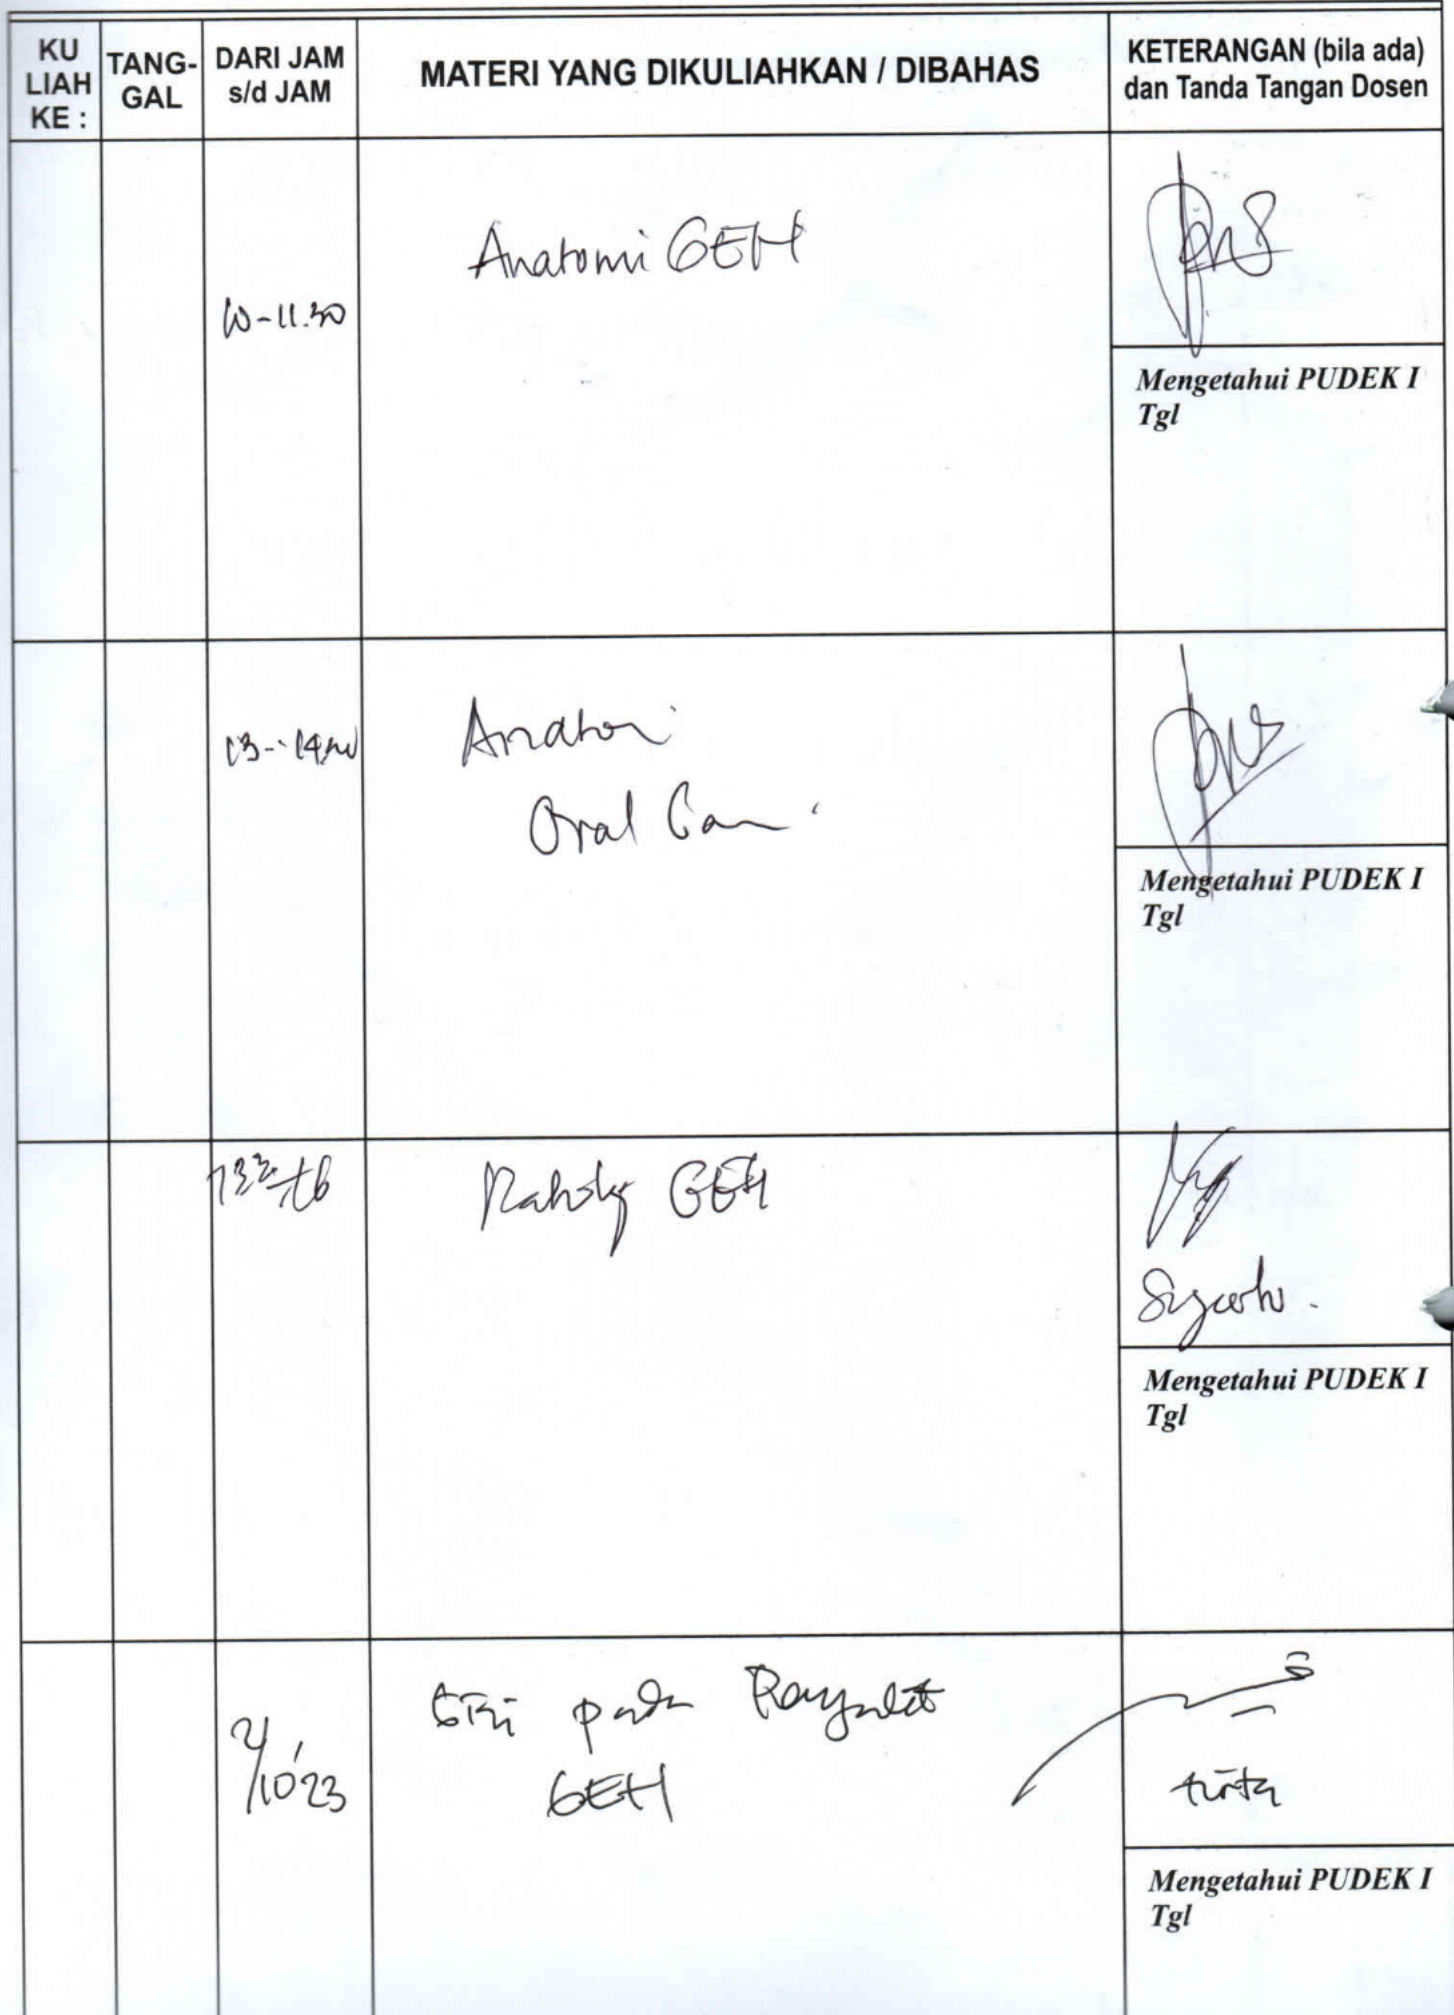 KU
LIAH
KE :
TANG-
GAL
DARI JAM
s/d JAM
MATERI YANG DIKULIAHKAN / DIBAHAS
KETERANGAN (bila ada)
dan Tanda Tangan Dosen
10-11.30
Anatomi GEH
Mengetahui PUDEK I
Tgl
13-
Oral
Mengetahui PUDEK I
Tgl
GEH
Mengetahui PUDEK I
Tgl
2/10'23
pada
GEH
tirta
Mengetahui PUDEK I
Tgl